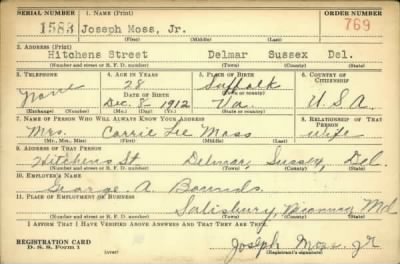 SERIAL NUMBER 1. NAME (Print) ORDER NUMBER
1583 Joseph Moss, Jr. 769
(First) (Middle) (Last)
2. ADDRESS (Print)
Hitchens Street Delmar Sussex Del.
(Number and street or R. F. D. number) (Town) (County) (State)
3. TELEPHONE 4. AGE IN YEARS 5. PLACE OF BIRTH 6. COUNTRY OF CITIZENSHIP
None 28 Suffolk
DATE OF BIRTH (Town or county)
Dec. 8 1912 Va. U.S.A
(Exchange) (Number) (Mo.) (Day) (Yr.) (State or country)
7. NAME OF PERSON WHO WILL ALWAYS KNOW YOUR ADDRESS 8. RELATIONSHIP OF THAT PERSON
Mrs. Carrie Lee Moss wife
(Mr., Mrs., Miss) (First) (Middle) (Last)
9. ADDRESS OF THAT PERSON
Hitchens St Delmar, Sussex, Del.
(Number and street or R. F. D. number) (Town) (County) (State)
10. EMPLOYER'S NAME
George. A Bounds.
11. PLACE OF EMPLOYMENT OR BUSINESS
Salisbury, Wicomico Md
(Number and street or R. F. D. number) (Town) (County) (State)
I AFFIRM THAT I HAVE VERIFIED ABOVE ANSWERS AND THAT THEY ARE TRUE.
REGISTRATION CARD Joseph Moss. Jr
D. S. S. Form 1 (Registrant's signature)